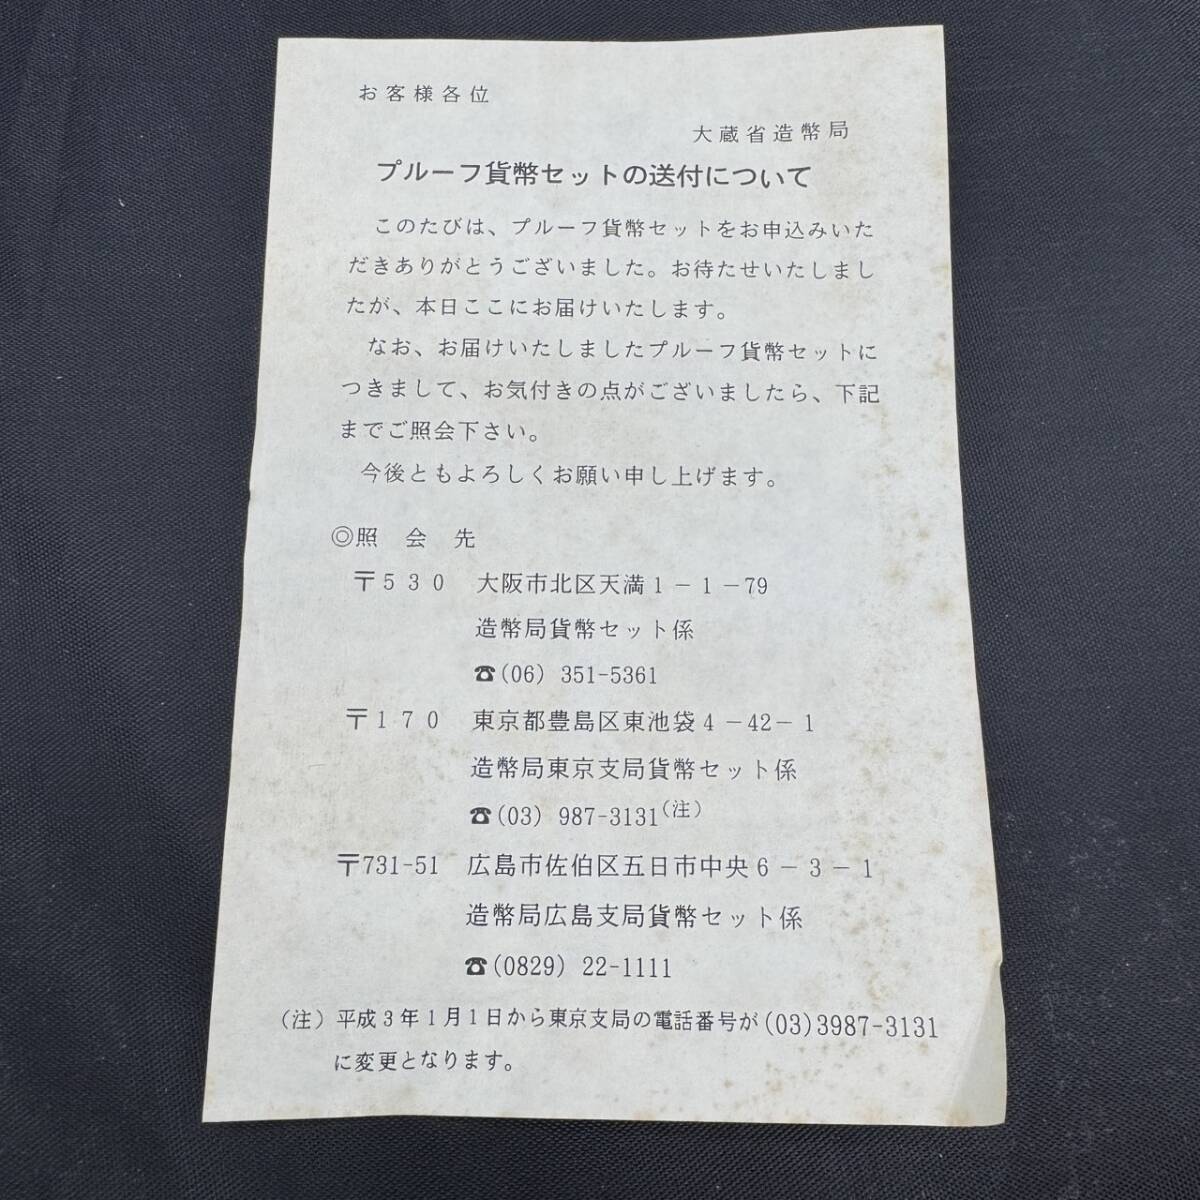 お客様各位
大蔵省造幣局
プルーフ貨幣セットの送付について
このたびは、プルーフ貨幣セットをお申込みいた
だきありがとうございました。お待たせいたしまし
たが、本日ここにお届けいたします。
なお、お届けいたしましたプルーフ貨幣セットに
つきまして、お気付きの点がございましたら、下記
までご照会下さい。
今後ともよろしくお願い申し上げます。
◎照 会 先
〒530 大阪市北区天満1-1-79
造幣局貨幣セット係
☎(06) 351-5361
〒170 東京都豊島区東池袋4-42-1
造幣局東京支局貨幣セット係
☎(03) 987-3131(注)
〒731-51 広島市佐伯区五日市中央6-3-1
造幣局広島支局貨幣セット係
☎(0829) 22-1111
(注) 平成3年1月1日から東京支局の電話番号が(03)3987-3131
に変更となります。